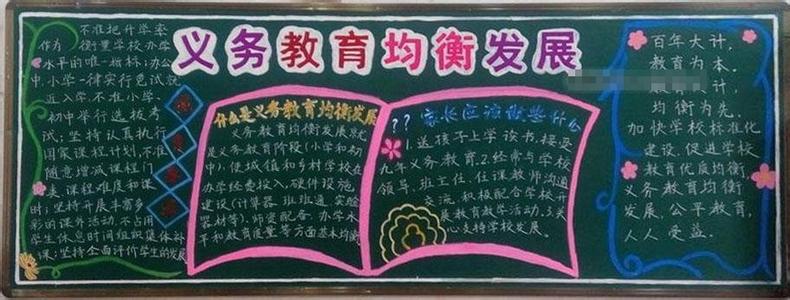 义务教育均衡发展
不准把升学率
作为衡量学校办学
水平的唯一指标;办公
中、小学一律实行免试就
近入学,不准小学、
初中举行选拔考
试;坚持认真执行
国家课程计划,不准
随意增减课程门
类、课程难度和课
时;坚持开展丰富多
彩的课外活动,不占用
学生休息时间组织集体补
课;坚持全面评价学生的发展
什么是义务教育均衡发展
义务教育均衡发展就
是义务教育阶段(小学和初
中),使城镇和乡村学校在
办学经费投入,硬件设施,
建设(计算器 班班通 实验
器材等),师资配备,办学水
平和教育质量等方面基本均衡
??家长应该做些什么
1.送孩子上学读书,接受
九年义务教育.2.经常与学校
领导,班主任,任课教师沟通
交流,积极配合学校开
展教育教学活动.3.关
心支持学校发展.
百年大计,
教育为本。
计,
均衡为先。
加快学校标准化
建设,促进学校
教育优质均衡,
义务教育均衡
发展,公平教育,
人人受益。